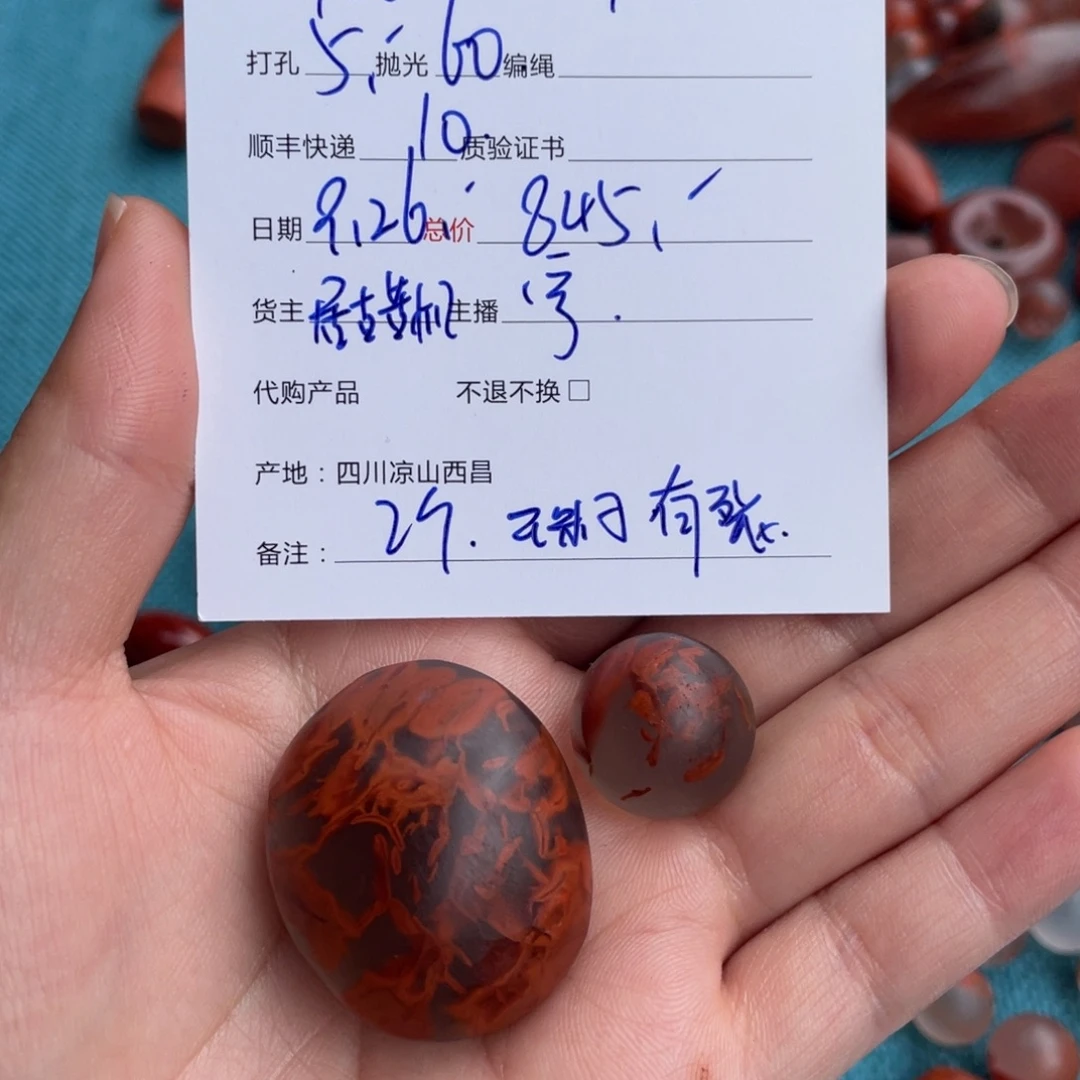 打孔 5, 抛光 60 编绳
顺丰快递 10. 质验证书
日期 9,26 总价 845,
货主 主播
代购产品 不退不换 □
产地：四川凉山西昌
备注： 29. 有裂.